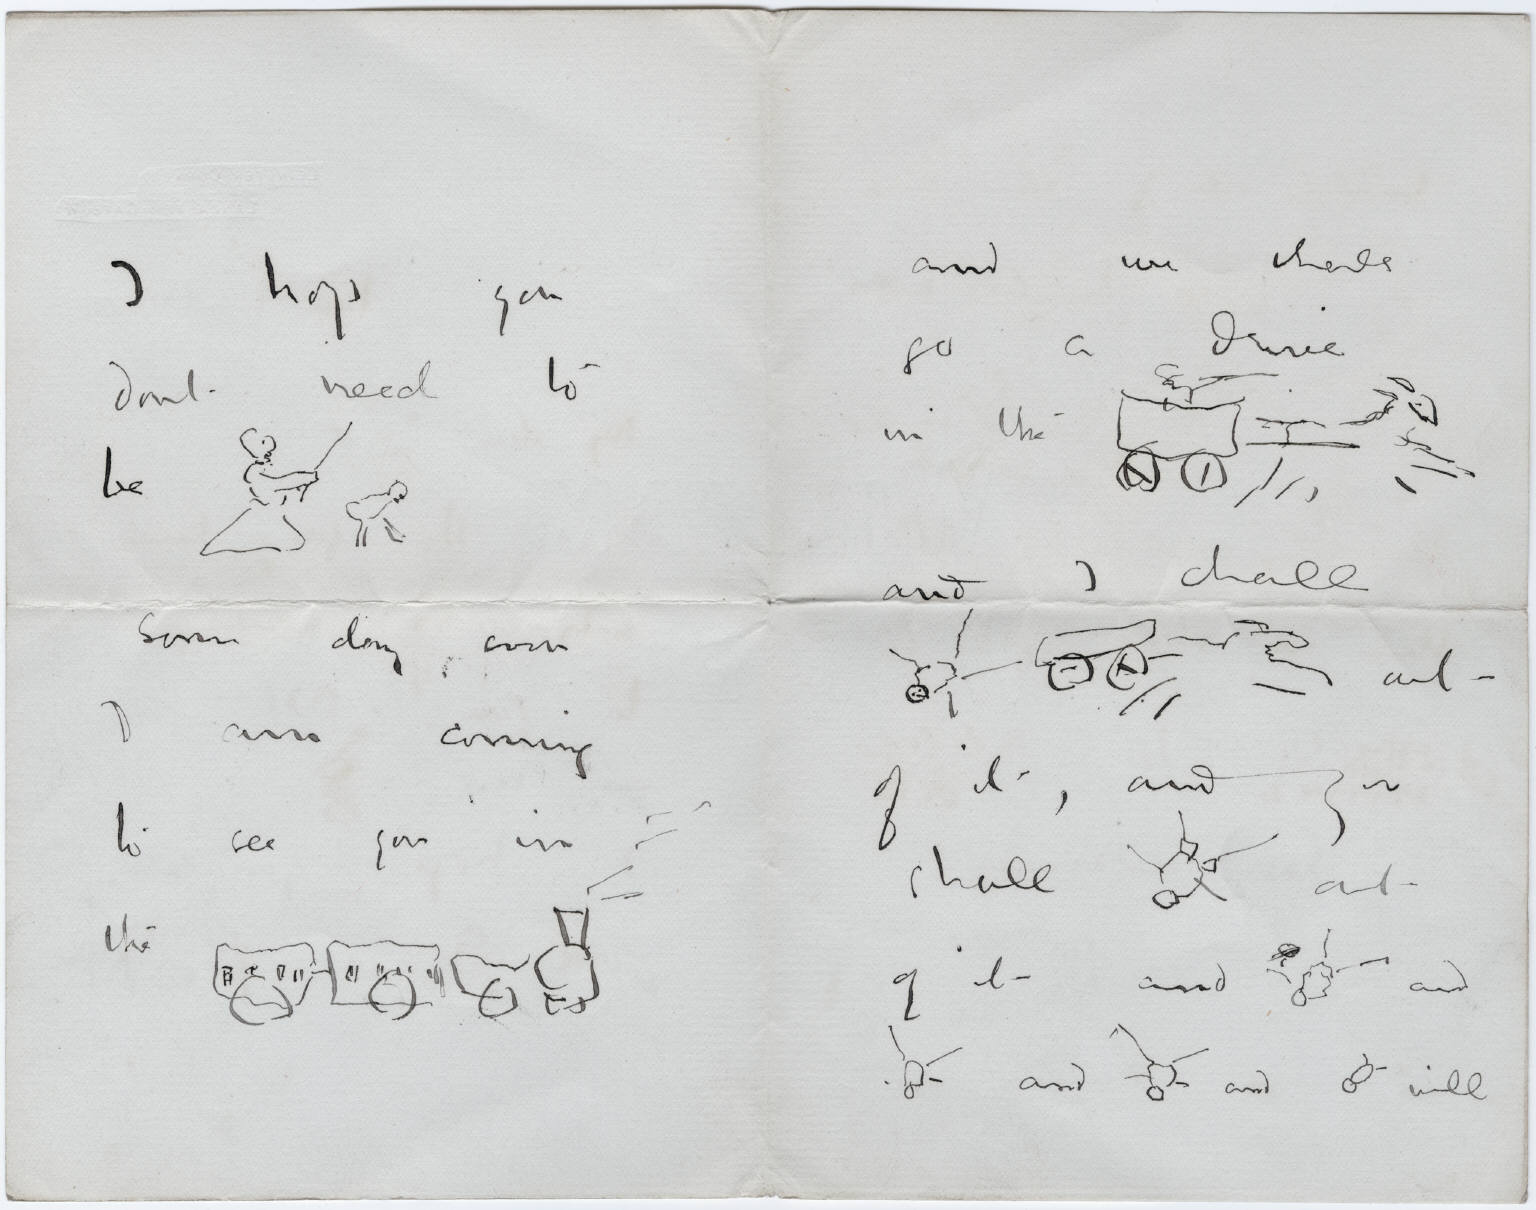 I hope you
dont need to
be
Some day soon
I am coming
to see you in
the
and we shall
go a Drive
in the
and I shall
out
of it, and you
shall out
of it and and
and and will